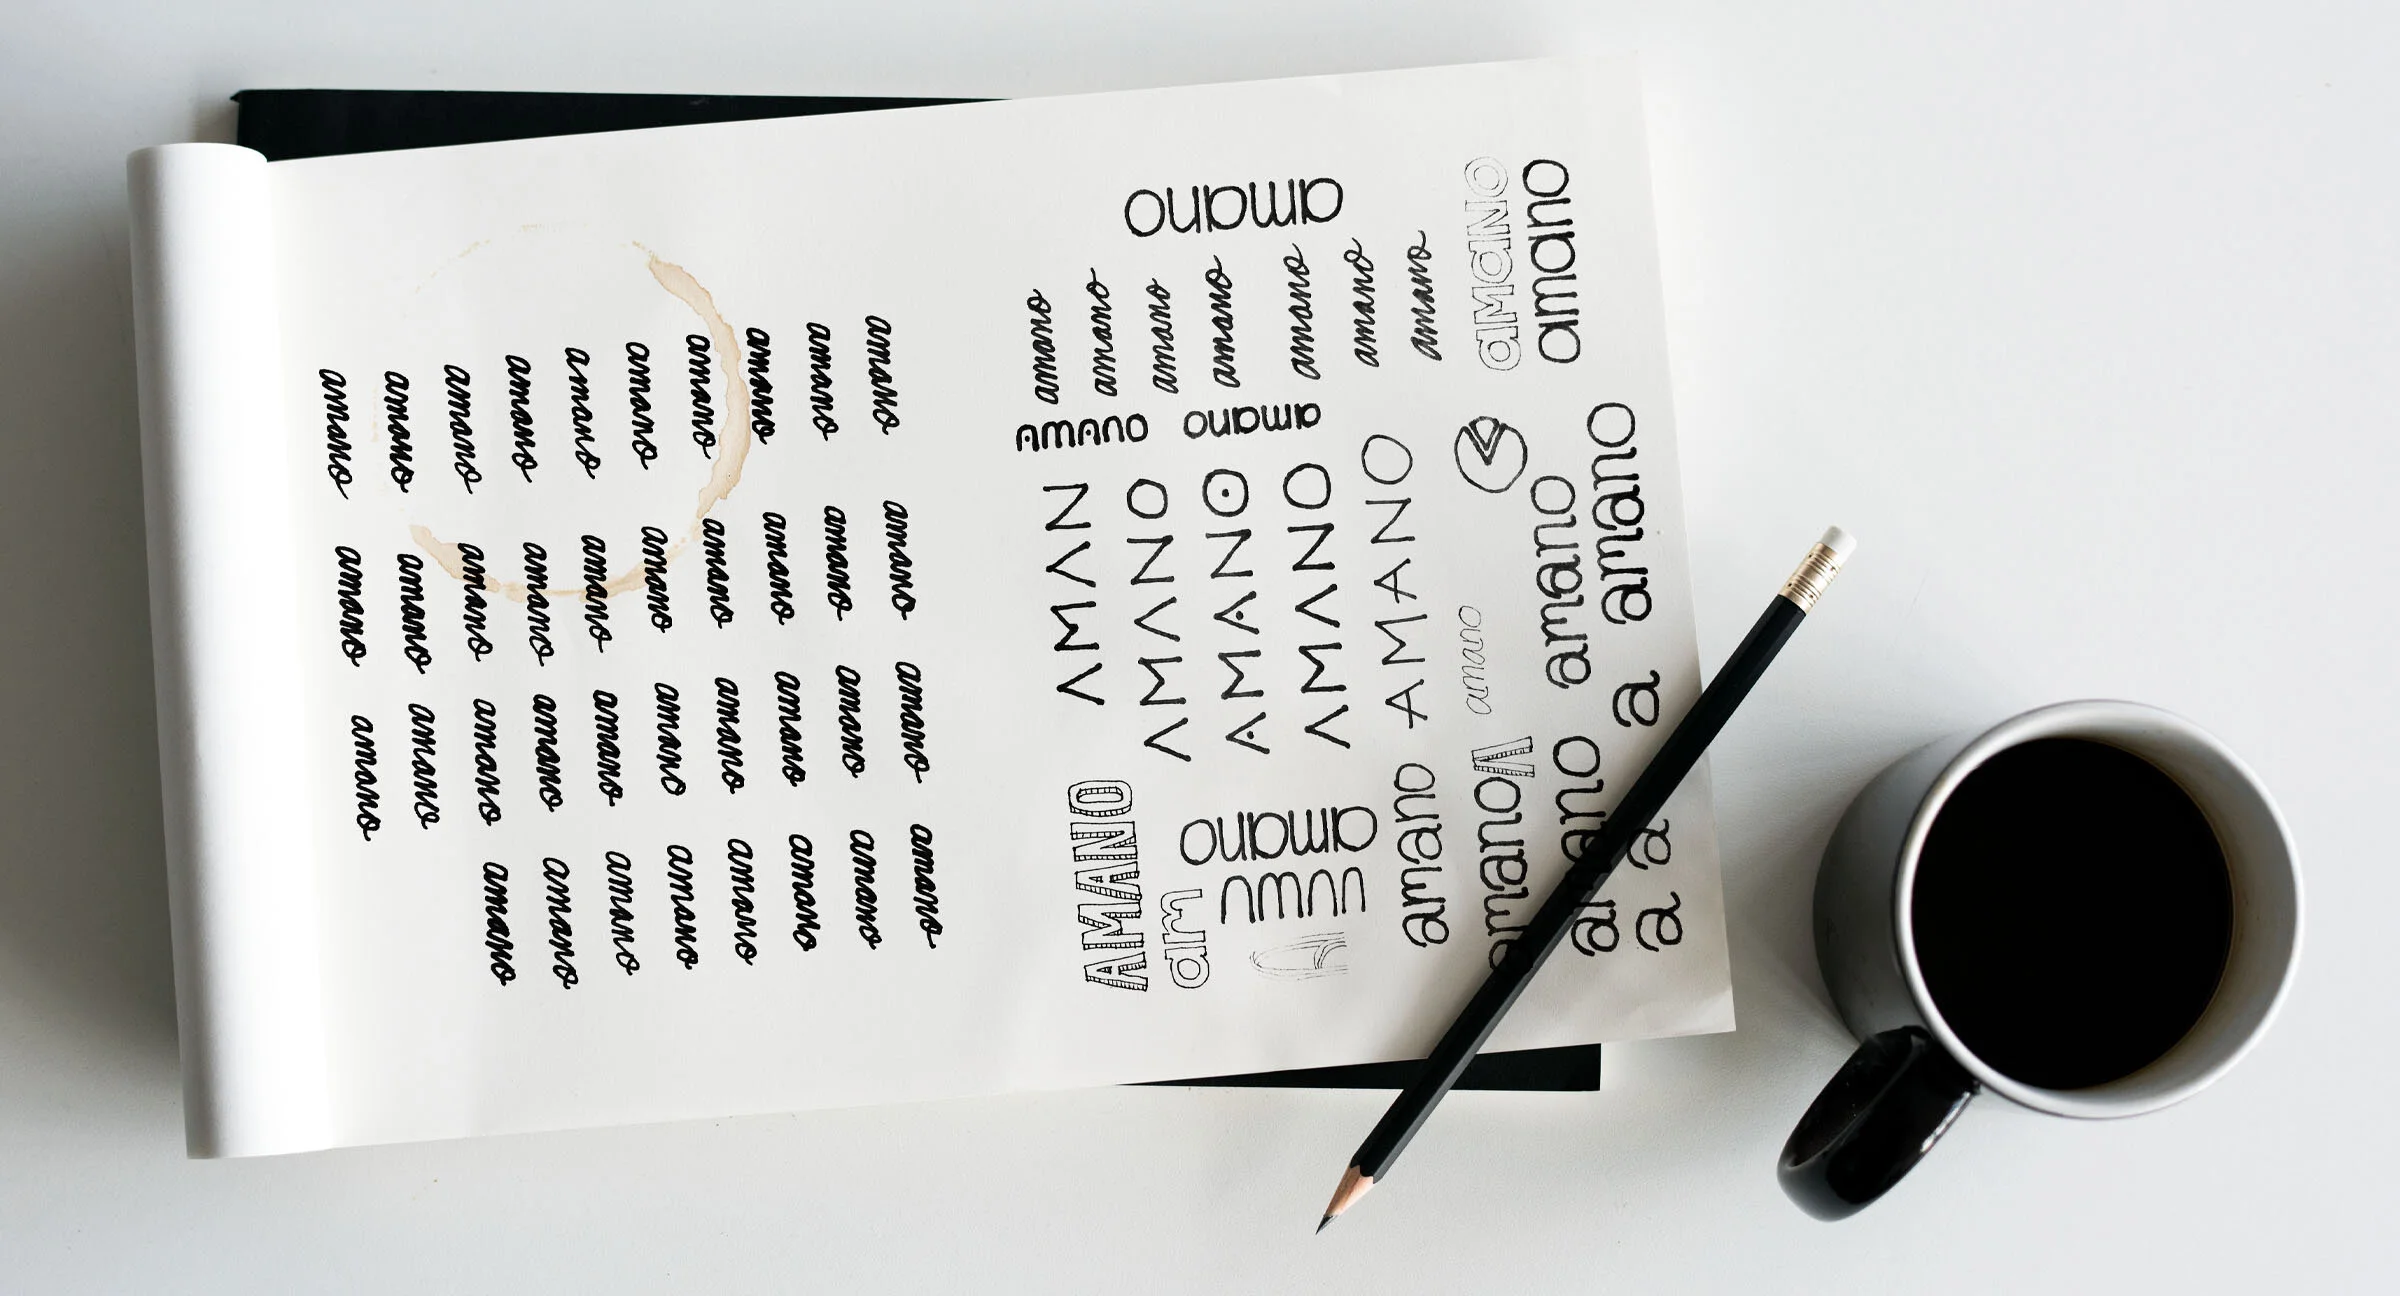 amano amano amano amano
amano amano amano amano
amano amano amano amano
amano amano amano amano
amano amano amano amano
amano amano amano amano
amano amano amano amano
amano amano amano amano
amano amano amano
amano amano amano
amano
amano
amano
amano
amano
amano
amano
amano
AMANO
amano
AMAN
AMANO
AMANO
AMANO
AMANO
AMANO
am
amano
amano
amano
amano
AMANO
amano
amano amano
a amano
a a